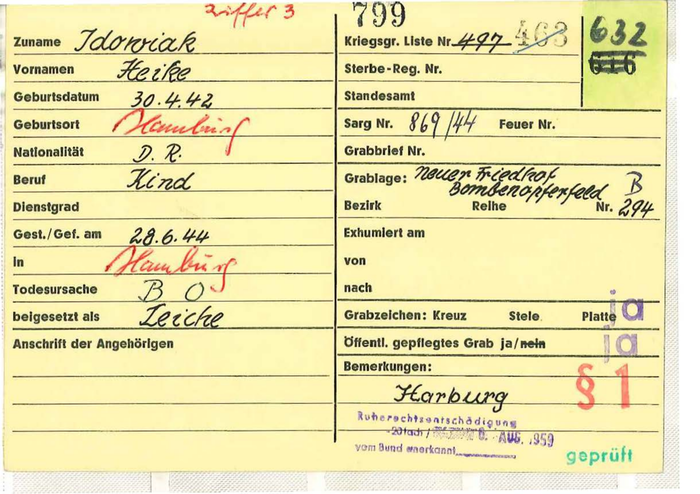 Ziffer 3
799
Zuname Idowiak
Vornamen Heike
Geburtsdatum 30.4.42
Geburtsort Hamburg
Nationalität D. R.
Beruf Kind
Dienstgrad
Gest./Gef. am 28.6.44
in Hamburg
Todesursache B O
beigesetzt als Leiche
Anschrift der Angehörigen
Kriegsgr. Liste Nr. 497 463
632
616
Sterbe-Reg. Nr.
Standesamt
Sarg Nr. 869/44 Feuer Nr.
Grabbrief Nr.
Grablage: neuer Friedhof
Bombenopferfeld B
Bezirk Reihe Nr. 294
Exhumiert am
von
nach
Grabzeichen: Kreuz Stele Platte ja
Öffentl. gepflegtes Grab ja/nein ja
Bemerkungen: § 1
Harburg
Ruherechtsentschädigung
20fach / 6. AUG. 1959
vom Bund anerkannt
geprüft